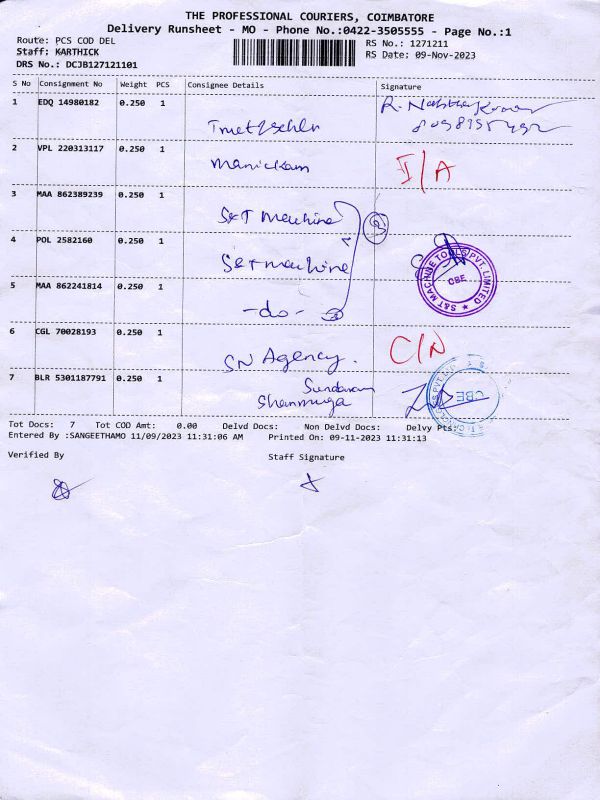 THE PROFESSIONAL COURIERS, COIMBATORE
Delivery Runsheet - MO - Phone No.:0422-3505555 - Page No.:1
Route: PCS COD DEL
RS No.: 1271211
Staff: KARTHICK
RS Date: 09-Nov-2023
DRS No.: DCJB127121101
S No Consignment No Weight PCS Consignee Details Signature
1 EDQ 14980182 0.250 1
2 VPL 220313117 0.250 1 Manickam I/A
3 MAA 862389239 0.250 1 S&T Machine
4 POL 2582160 0.250 1 S&T machine
S&T MACHINE TOOLS PVT. LIMITED
CBE
5 MAA 862241814 0.250 1 -do-
6 CGL 70028193 0.250 1 SN Agency. C/N
7 BLR 5301187791 0.250 1 Sundaram
Shanmuga
CBE
Tot Docs: 7 Tot COD Amt: 0.00 Delvd Docs: Non Delvd Docs: Delvy Pts:
Entered By :SANGEETHAMO 11/09/2023 11:31:06 AM Printed On: 09-11-2023 11:31:13
Verified By Staff Signature